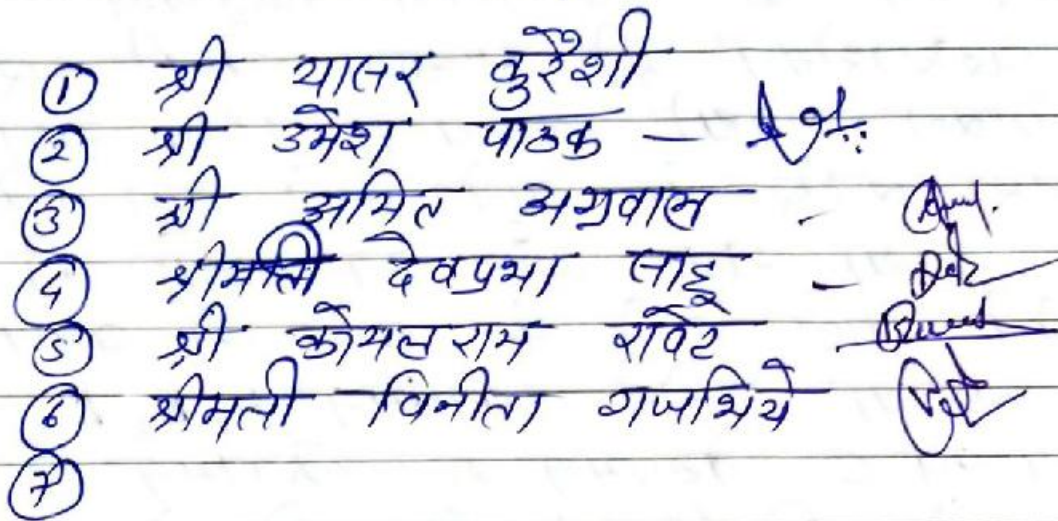 ① श्री यासर कुरैशी
② श्री उमेश पाठक —
③ श्री अमित अग्रवाल -
④ श्रीमती देवप्रभा साहू -
⑤ श्री कोमलराम रावटे
⑥ श्रीमती विनीता गजभिये
⑦